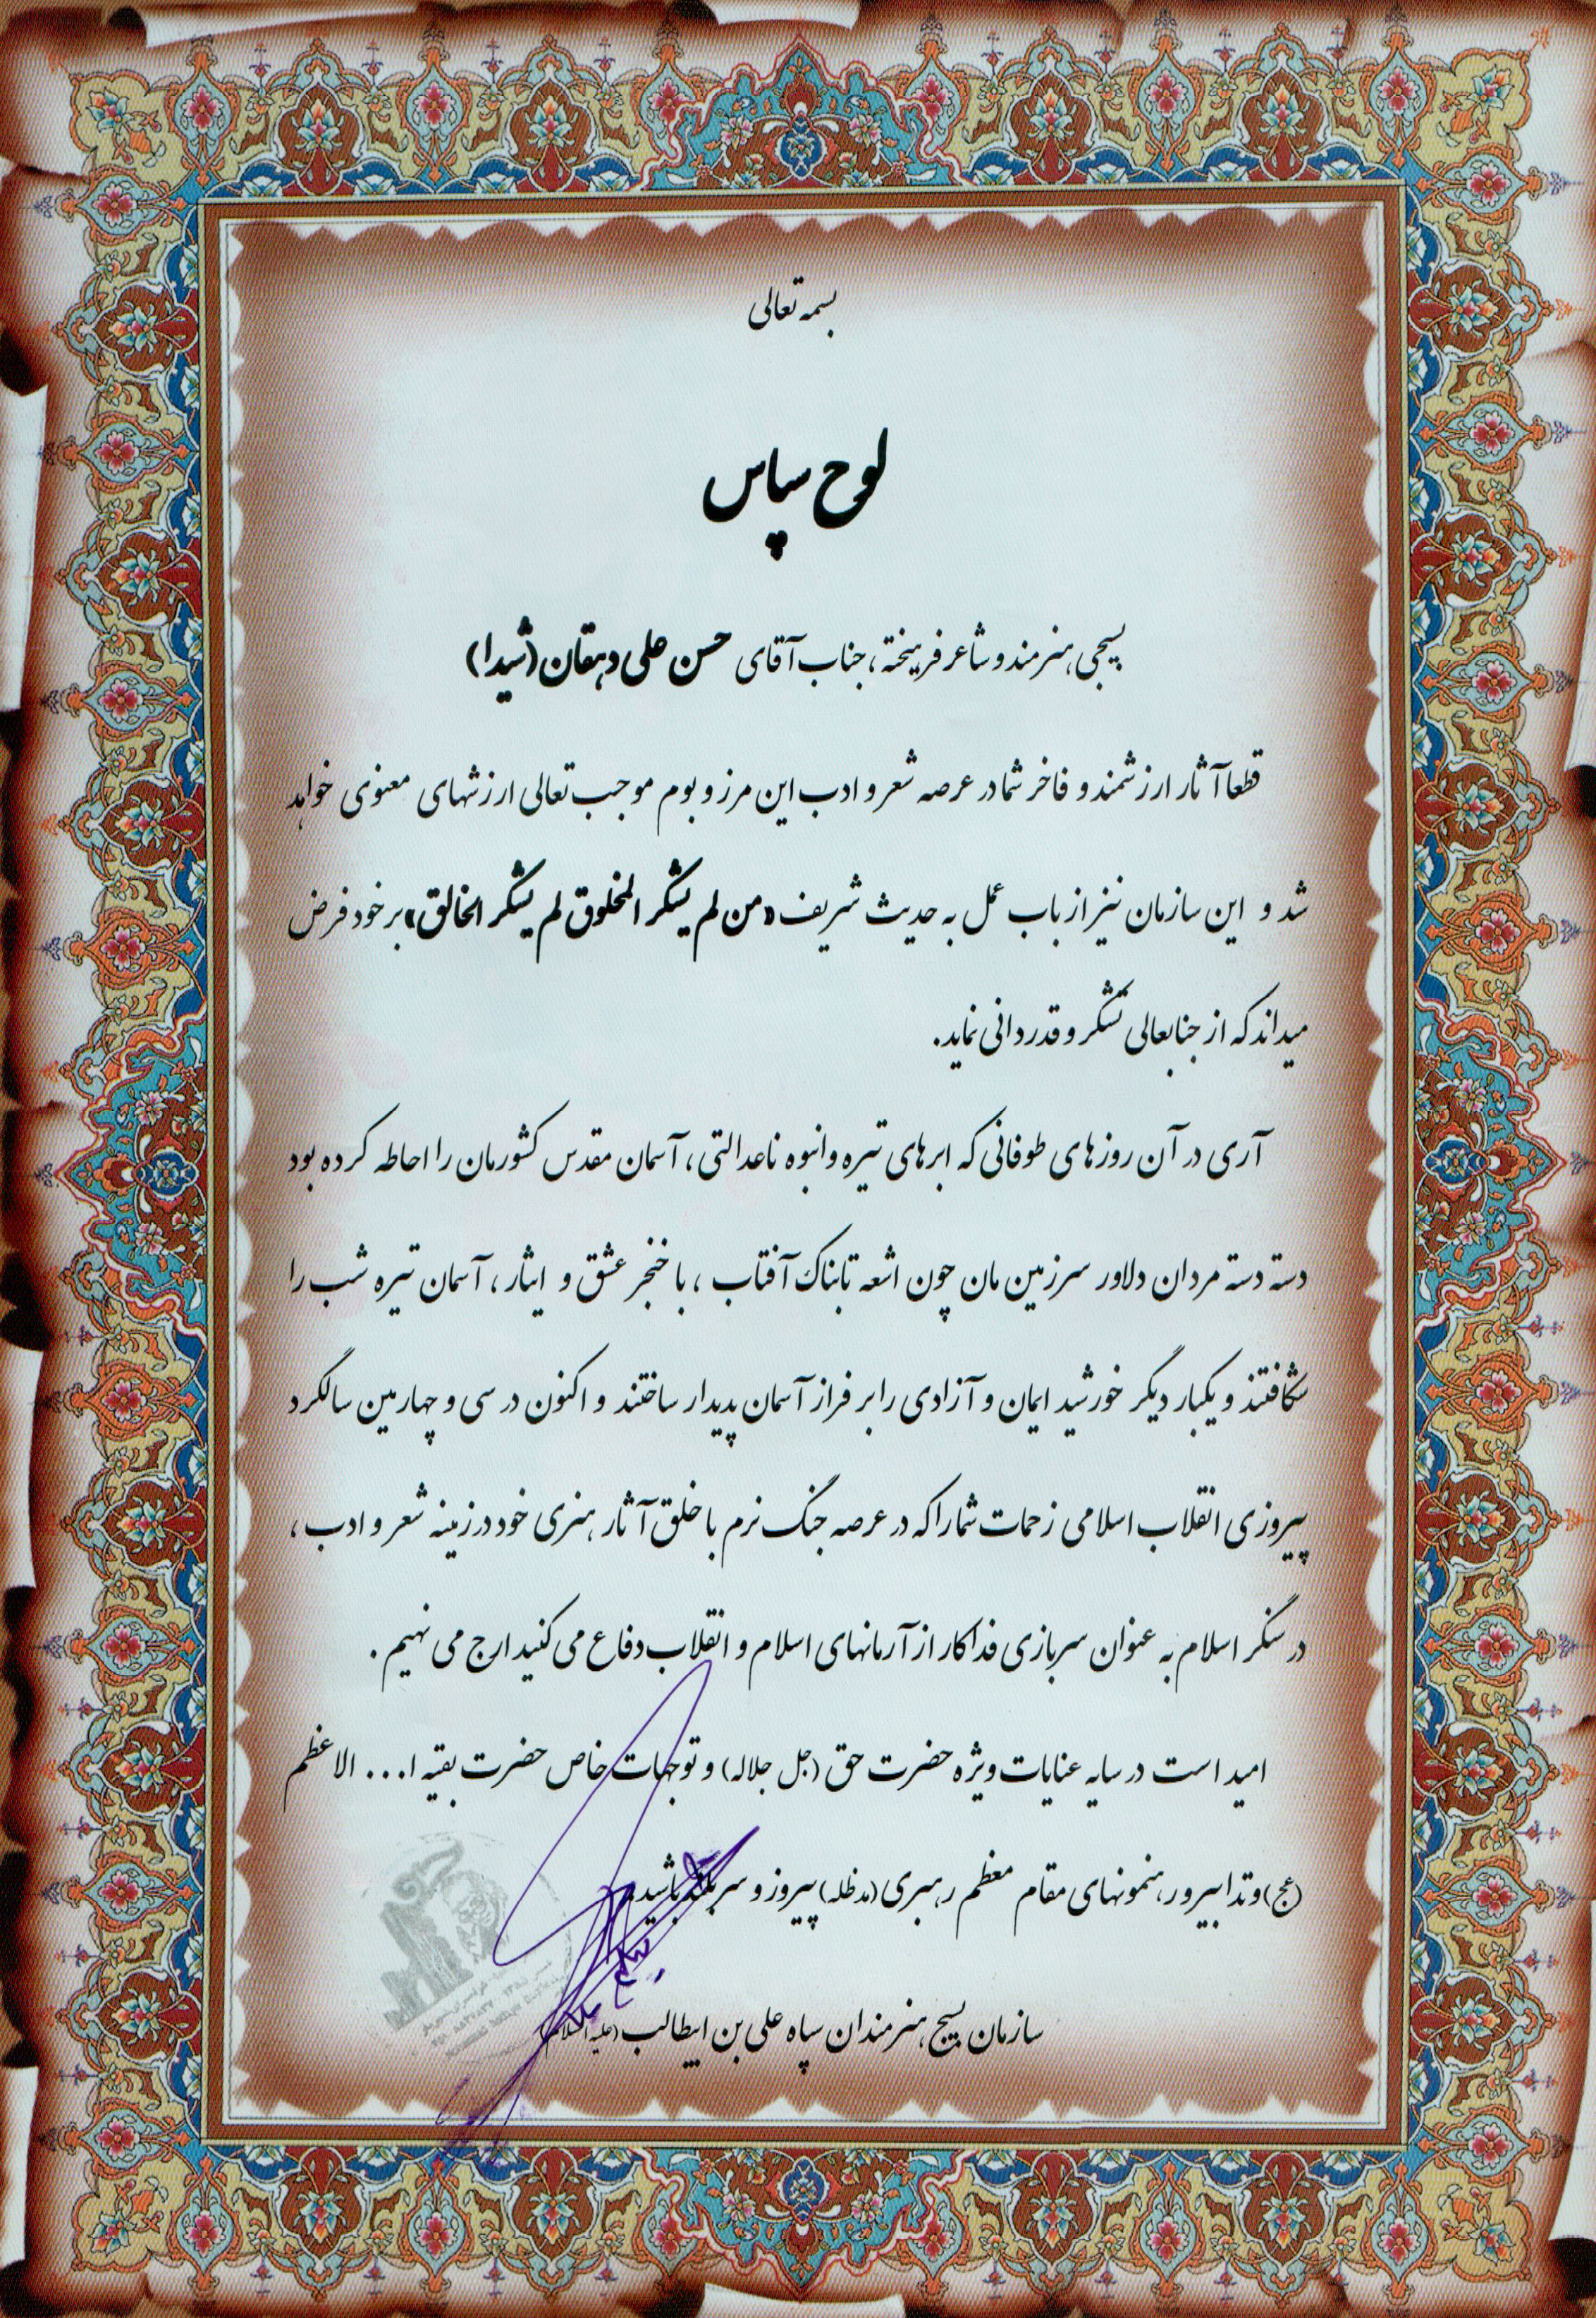 بسمه تعالی
لوح سپاس
بسیجی، هنرمند و شاعر فرهیخته، جناب آقای حسن علی دهقان (شیدا)
قطعا آثار ارزشمند و فاخر شما در عرصه شعر و ادب این مرز و بوم موجب تعالی ارزشهای معنوی خواهد
شد و این سازمان نیز از باب عمل به حدیث شریف «من لم یشکر المخلوق لم یشکر الخالق» بر خود فرض
میداند که از جنابعالی تشکر و قدردانی نماید.
آری در آن روزهای طوفانی که ابرهای تیره و انبوه ناعدالتی، آسمان مقدس کشورمان را احاطه کرده بود
دسته دسته مردان دلاور سرزمین مان چون اشعه تابناک آفتاب، با خنجر عشق و ایثار، آسمان تیره شب را
شکافتند و یکبار دیگر خورشید ایمان و آزادی را بر فراز آسمان پدیدار ساختند و اکنون در سی و چهارمین سالگرد
پیروزی انقلاب اسلامی زحمات شما را که در عرصه جنگ نرم با خلق آثار هنری خود در زمینه شعر و ادب،
در سنگر اسلام به عنوان سربازی فداکار از آرمانهای اسلام و انقلاب دفاع می کنید ارج می نهیم.
امید است در سایه عنایات ویژه حضرت حق (جل جلاله) و توجهات خاص حضرت بقیه ا... الاعظم
(عج) و تدابیر و رهنمونهای مقام معظم رهبری (مدظله) پیروز و سربلند باشید.
سازمان بسیج هنرمندان سپاه علی بن ابیطالب (علیه السلام)